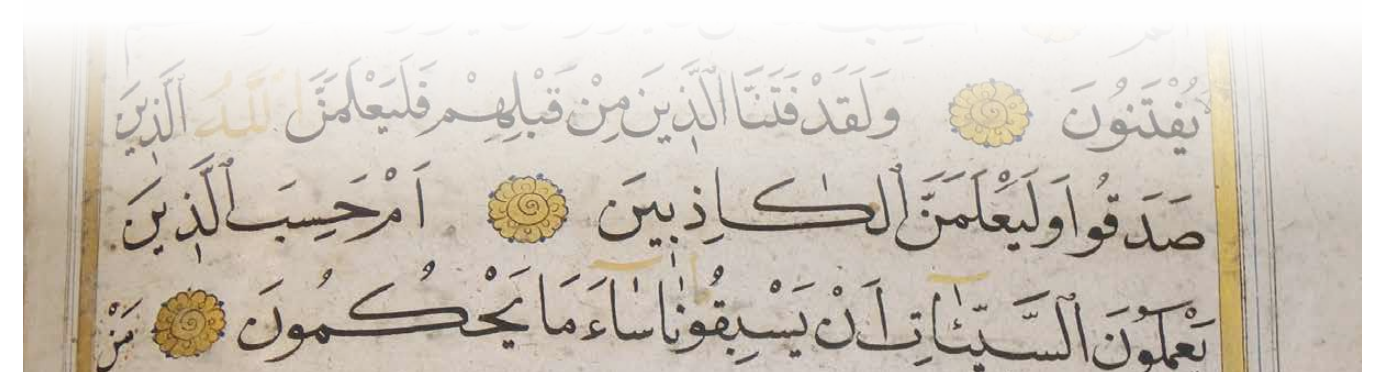 يُفْتَنُونَ وَلَقَدْ فَتَنَّا الَّذِينَ مِنْ قَبْلِهِمْ فَلَيَعْلَمَنَّ اللَّهُ الَّذِينَ
صَدَقُوا وَلَيَعْلَمَنَّ الْكَاذِبِينَ اَمْ حَسِبَ الَّذِينَ
يَعْمَلُونَ السَّيِّئَاتِ اَنْ يَسْبِقُونَا سَاءَ مَا يَحْكُمُونَ مَنْ